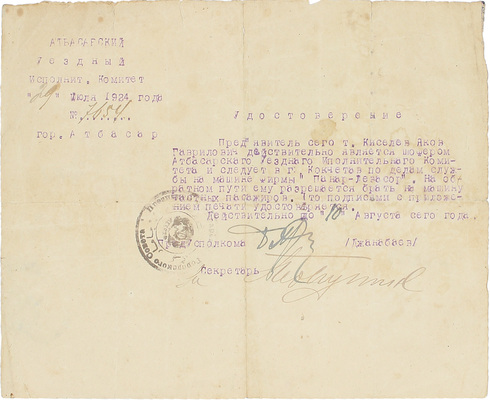 АТБАСАРСКИЙ
УЕЗДНЫЙ
Исполнит. Комитет
"29" Июля 1924 года
№ 7654
гор. Атбасар
Удостоверение
Пред'явитель сего т. Киселев Яков
Гаврилович действительно является шофером
Атбасарского Уездного Исполнительного Коми-
тета и следует в г. Кокчетав по делам служ-
бы на машине фирмы "Панар-Левасор". На об
ратном пути ему разрешается брать на машину
частных пасажиров. Что подписями с приложе-
нием печати удостоверяется.
Действительно до "10" Августа сего года.
Пред'усполкома /Джанабаев/
Секретарь